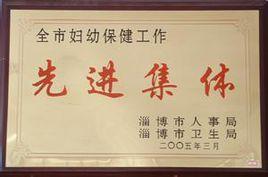 全市妇幼保健工作
先进集体
淄博市人事局
淄博市卫生局
二〇〇五年三月